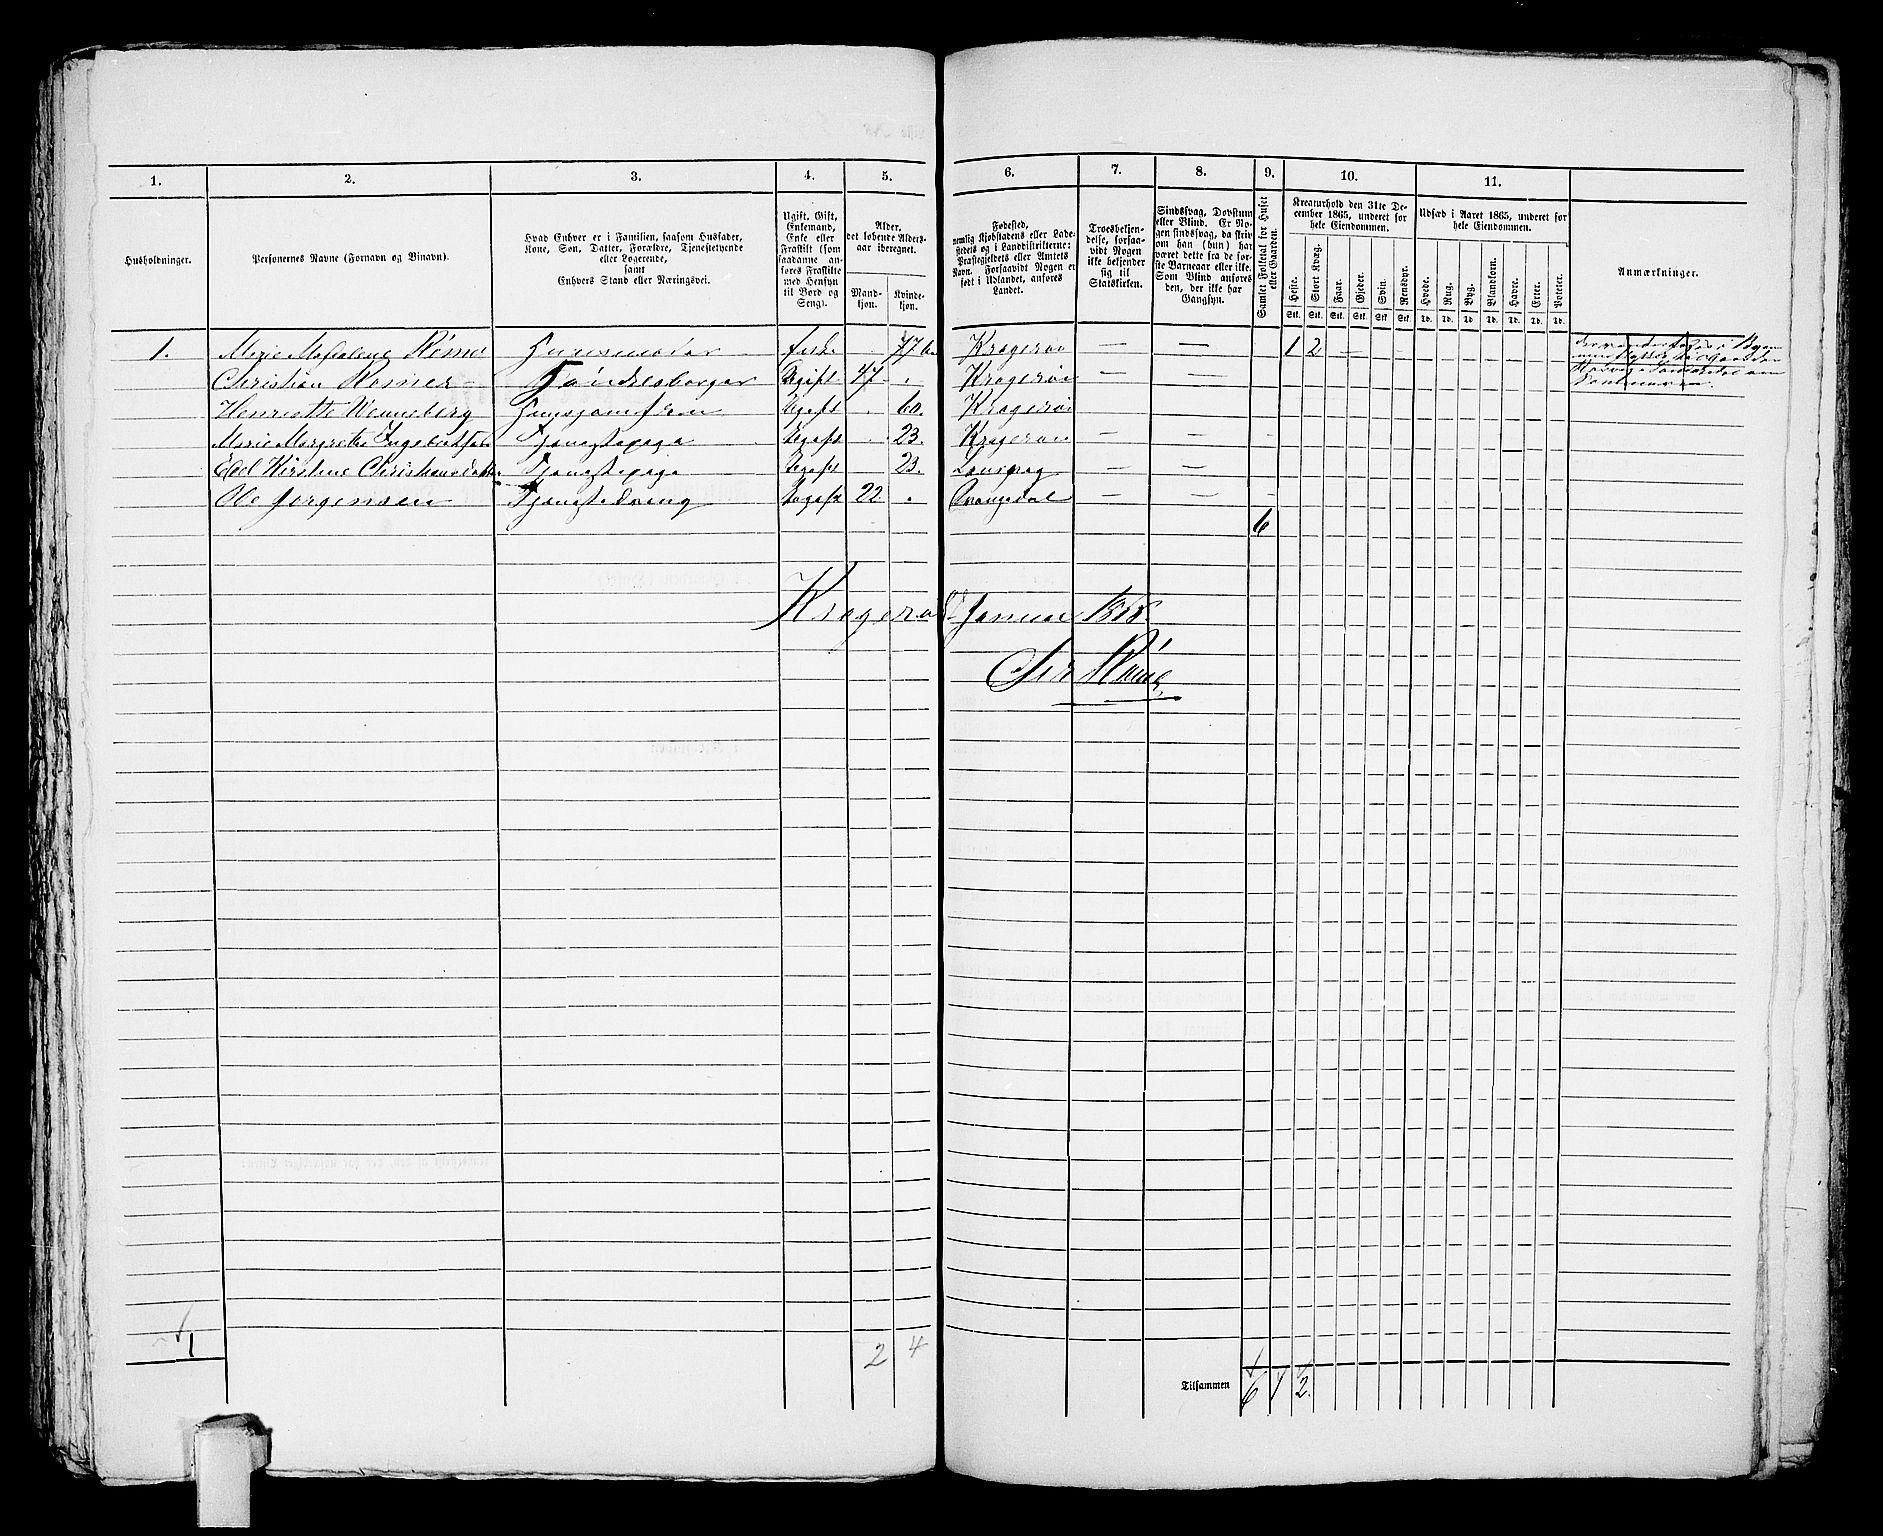 1. 2. 3. 4. 5. 6. 7. 8. 9. 10. 11.
Husholdninger.
Personernes Navne (Fornavn og Binavn).
Hvad Enhver er i Familien, saasom Husfader,
Kone, Søn, Datter, Forældre, Tjenestetyende
eller Logerende,
samt
Enhvers Stand eller Næringsvei.
Ugift, Gift,
Enkemand,
Enke eller
Fraskilt (som
saadanne an-
føres Fraskilte
med Hensyn
til Bord og
Seng).
Alder,
det løbende Alders-
aar iberegnet.
Mand-
kjøn.
Kvinde-
kjøn.
Fødested,
nemlig Kjøbstadens eller Lade-
stedets og i Landdistrikterne:
Præstegjeldets eller Amtets
Navn. Forsaavidt Nogen er
født i Udlandet, anføres
Landet.
Troesbekjen-
delse, forsaa-
vidt Nogen
ikke bekjender
sig til
Statskirken.
Sindssvag, Døvstum
eller Blind. Er No-
gen sindssvag, da skriv
om han (hun) har
været dette fra de før-
ste Barneaar eller ikke.
Som Blind anføres
den, der ikke har
Gangsyn.
Samlet Folketal for Huset
eller Gaarden.
Kreaturhold den 31te De-
cember 1865, underet for
hele Eiendommen.
Heste. Stort Kvæg. Faar. Gjeder. Svin. Rensdyr.
Stk. Stk. Stk. Stk. Stk. Stk.
Udsæd i Aaret 1865, underet for
hele Eiendommen.
Hvede. Rug. Byg. Blandkorn. Havre. Erter. Poteter.
Td. Td. Td. Td. Td. Td. Td.
Anmærkninger.
1. Marie Magdalene Rømer Huusmoder Enke 77 Kragerøe 1 2 —
Christian Rømer Handelsborger Ugift 47 Kragerøe — —
Henriette Wenneberg Huusjomfru Ugift 60. Kragerøe
Marie Margrethe Ingebretsen Tjenestepige Ugift 23. Kragerøe — —
Kirstine Christiansdatter Tjenestepige Ugift 23. — —
Ole Jørgensen Tjenestedreng Ugift 22 Drangedal — —
6
Kragerø Januar 1866.
Rømer
1 2 4
Tilsammen 6 1 2.